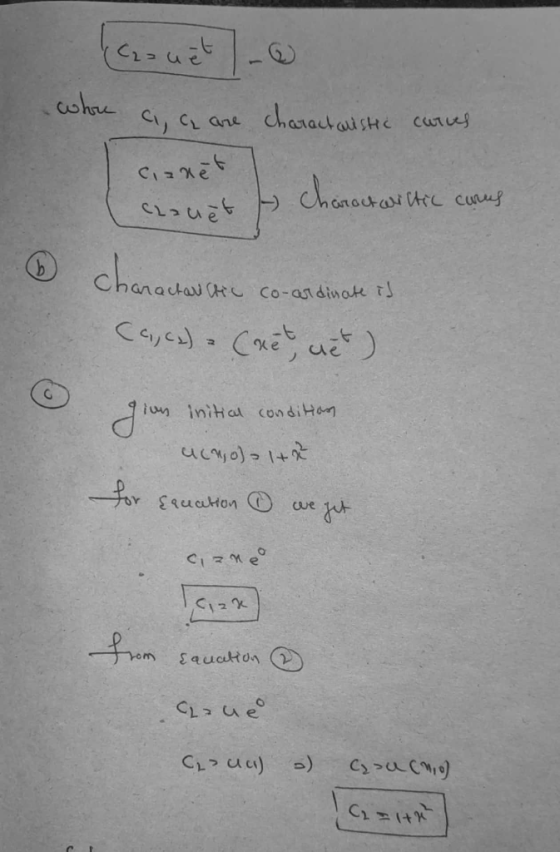 C₂ = ue⁻ᵗ - ②
where C₁, C₂ are characteristic curves
C₁ = xe⁻ᵗ
C₂ = ue⁻ᵗ → characteristic curves
ⓑ characteristic co-ordinate is
(C₁, C₂) = (xe⁻ᵗ, ue⁻ᵗ)
ⓒ given initial condition
u(x,0) = 1+x²
for Equation ① we get
C₁ = xe⁰
C₁ = x
from Equation ②
C₂ = ue⁰
C₂ = u(1) ⇒ C₂ = u(x,0)
C₂ = 1+x²